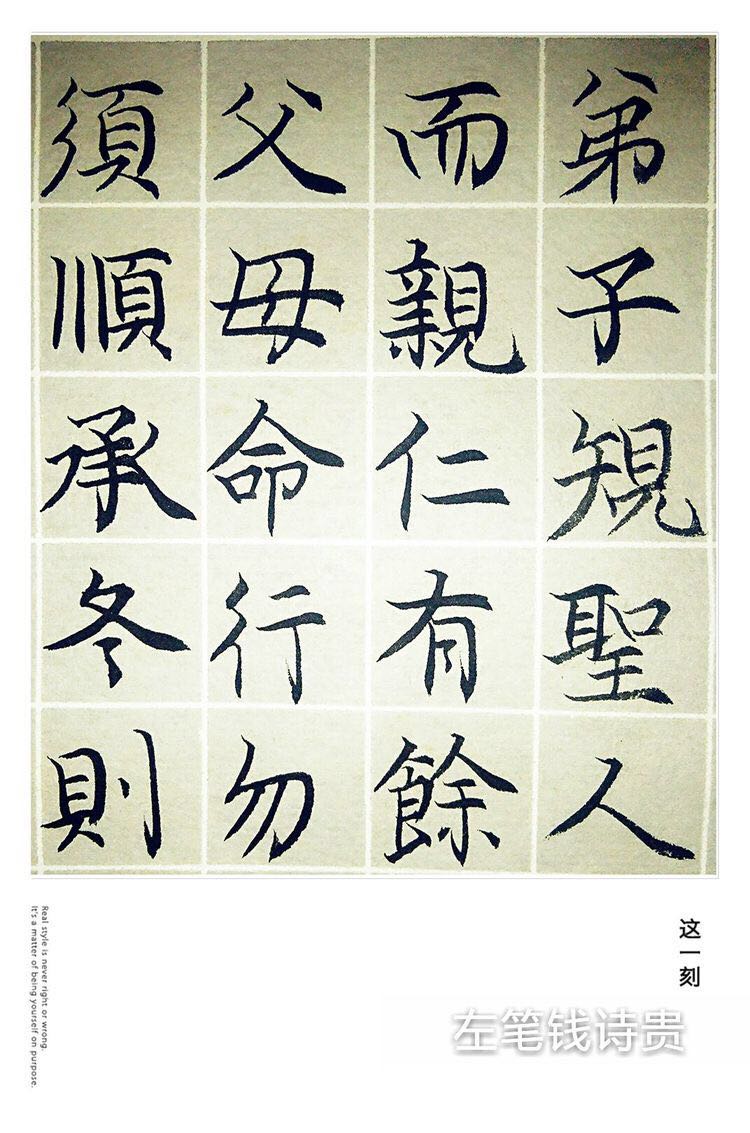 弟子規聖人
而親仁有餘
父母命行勿
須順承冬則
这一刻
左笔钱诗贵
Real style is never right or wrong.
It's a matter of being yourself on purpose.